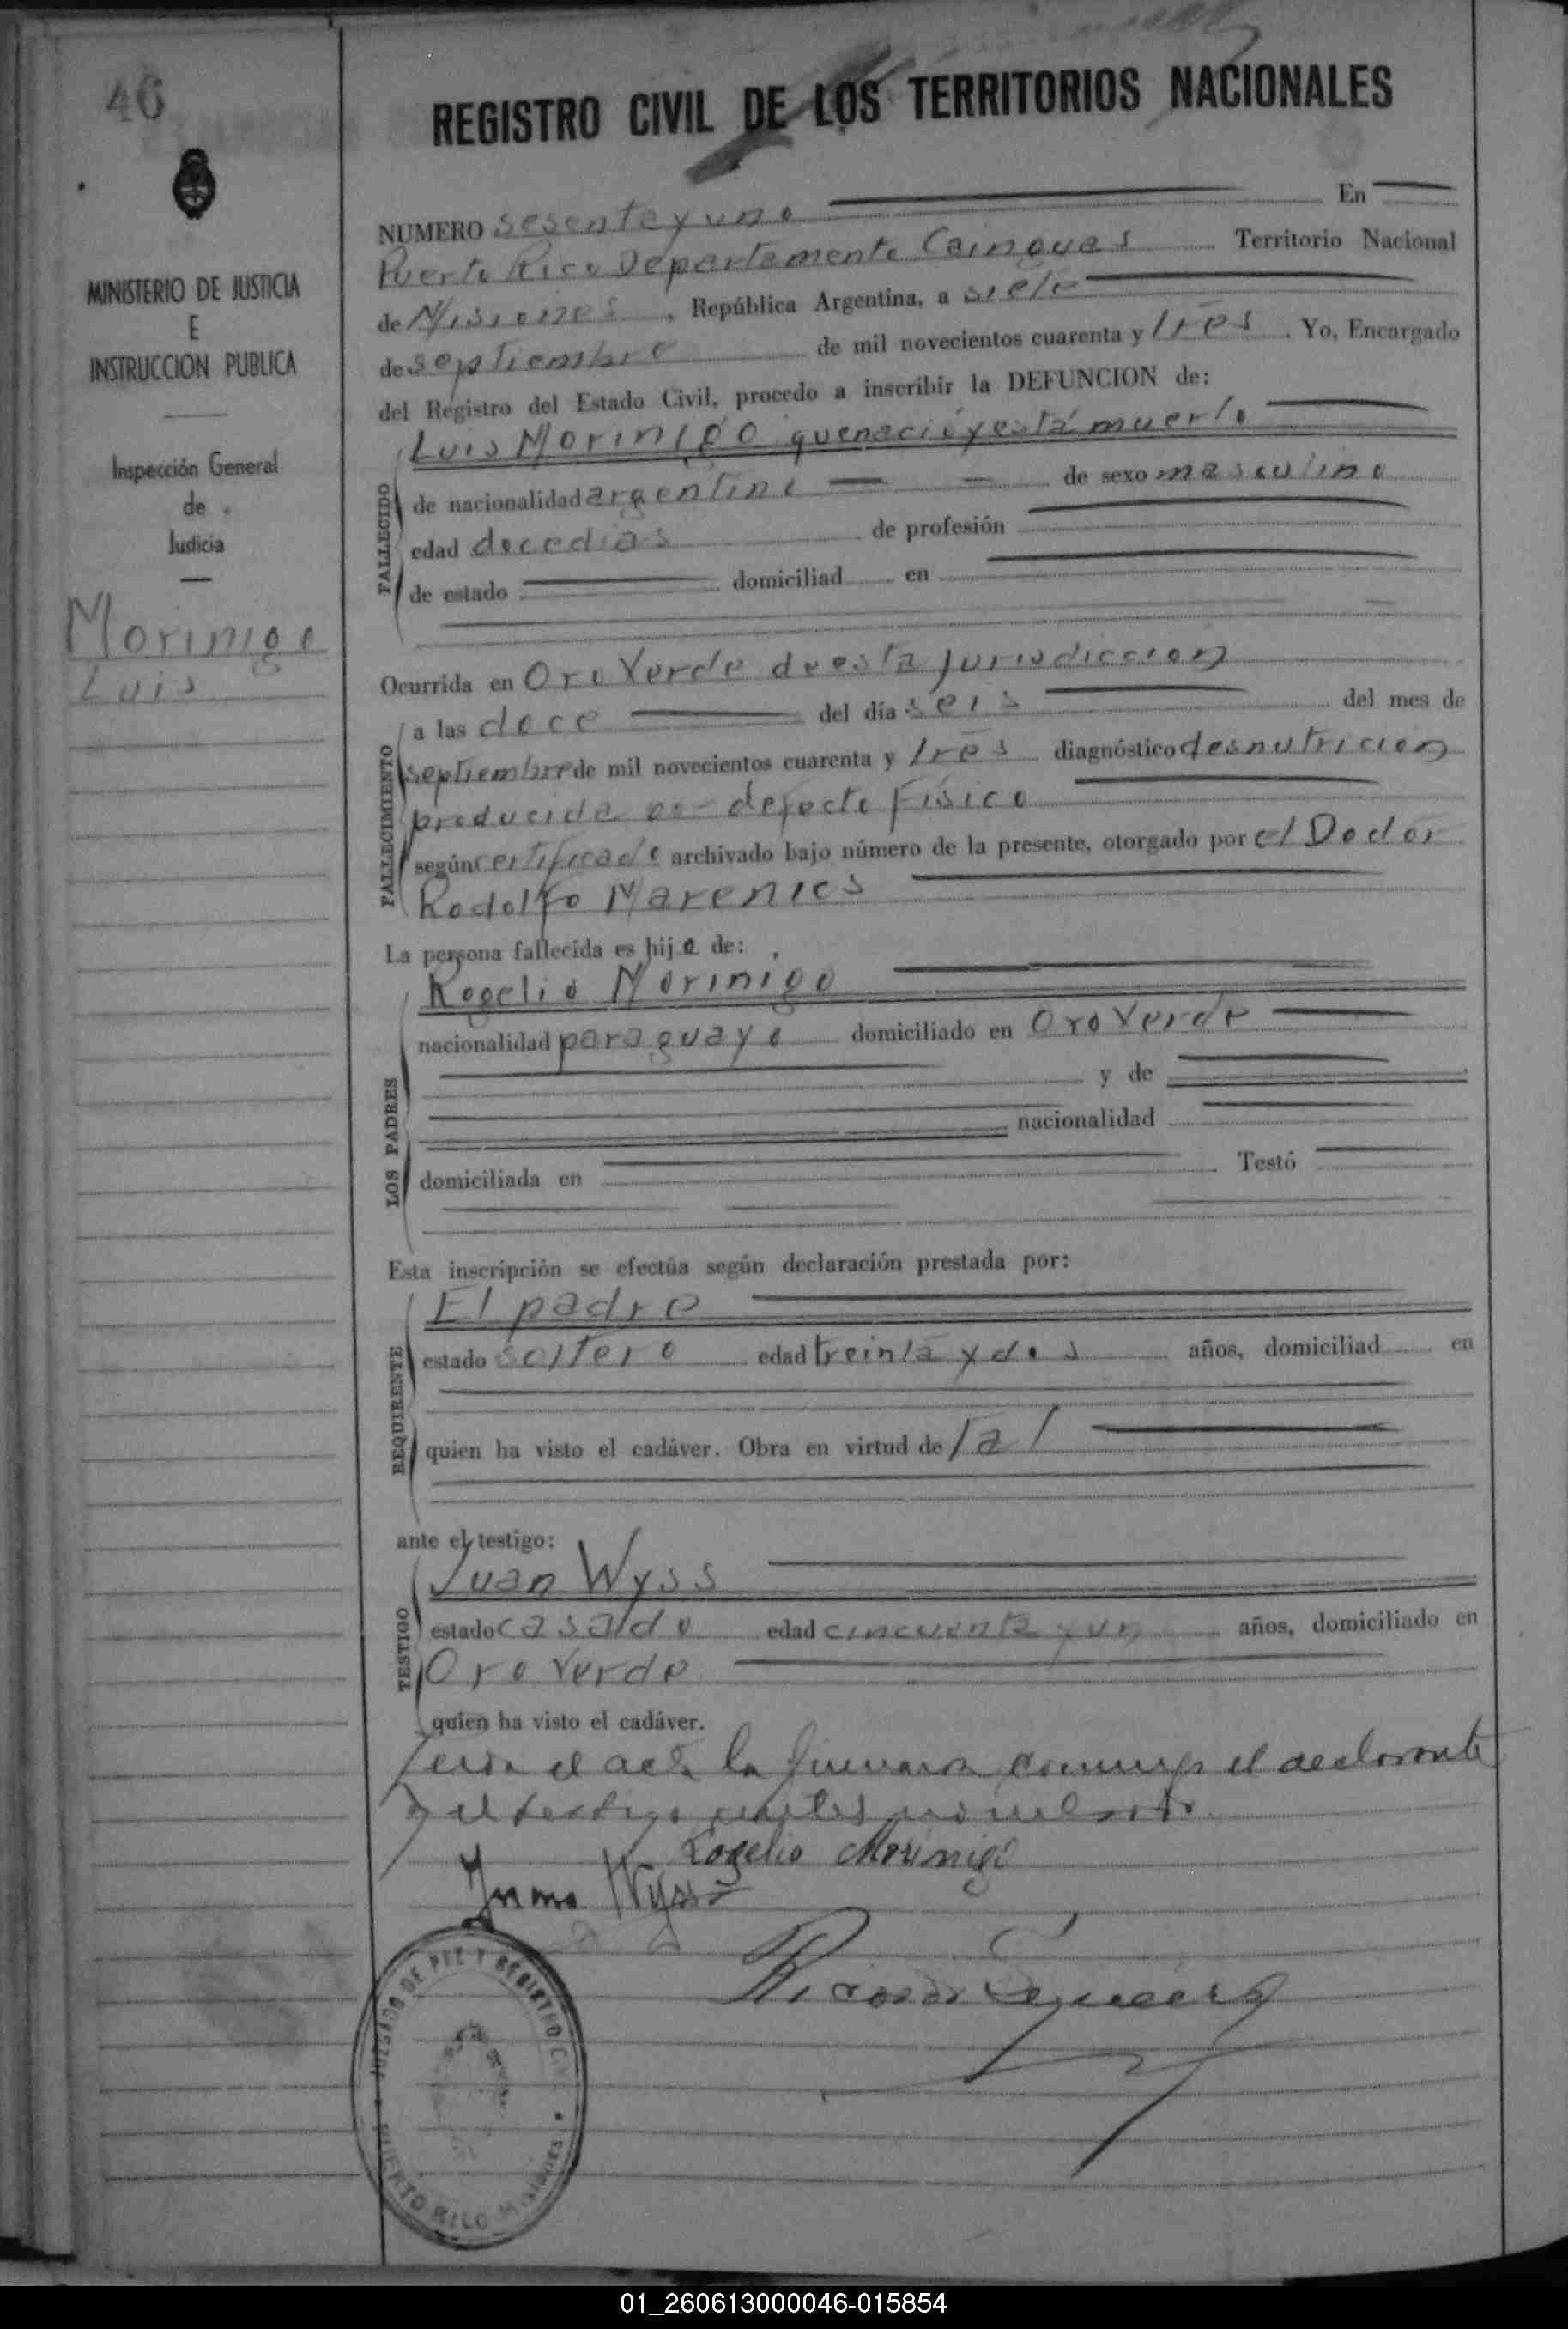 46
REGISTRO CIVIL DE LOS TERRITORIOS NACIONALES
MINISTERIO DE JUSTICIA
E
INSTRUCCION PUBLICA
Inspección General
de
Justicia
Morinigo
Luis
NUMERO sesenta y uno En
Puerto Rico Departamento Cainguas Territorio Nacional
de Misiones, República Argentina, a siete
de septiembre de mil novecientos cuarenta y tres. Yo, Encargado
del Registro del Estado Civil, procedo a inscribir la DEFUNCION de:
Luis Morinigo que nació y está muerto
FALLECIDO
de nacionalidad argentino de sexo masculino
edad doce dias de profesión
de estado domiciliad en
Ocurrida en Oro Verde de esta jurisdiccion
a las doce del día seis del mes de
FALLECIMIENTO
septiembre de mil novecientos cuarenta y tres diagnóstico desnutricion
producida por defecto Físico
según certificado archivado bajo número de la presente, otorgado por el Doctor
Rodolfo Marenics
La persona fallecida es hijo de:
Rogelio Morinigo
LOS PADRES
nacionalidad paraguayo domiciliado en Oro Verde
y de
nacionalidad
domiciliada en Testó
Esta inscripción se efectúa según declaración prestada por:
El padre
REQUIRENTE
estado soltero edad treinta y dos años, domiciliad en
quien ha visto el cadáver. Obra en virtud de tal
ante el testigo:
Juan Wyss
TESTIGO
estado casado edad cincuenta y un años, domiciliado en
Oro Verde
quien ha visto el cadáver.
el acta la conmigo el declarante
y el testigo
Rogelio Morinigo
Wyss
JUZGADO DE PAZ Y REGISTRO CIVIL
PUERTO RICO MISIONES
01_260613000046-015854